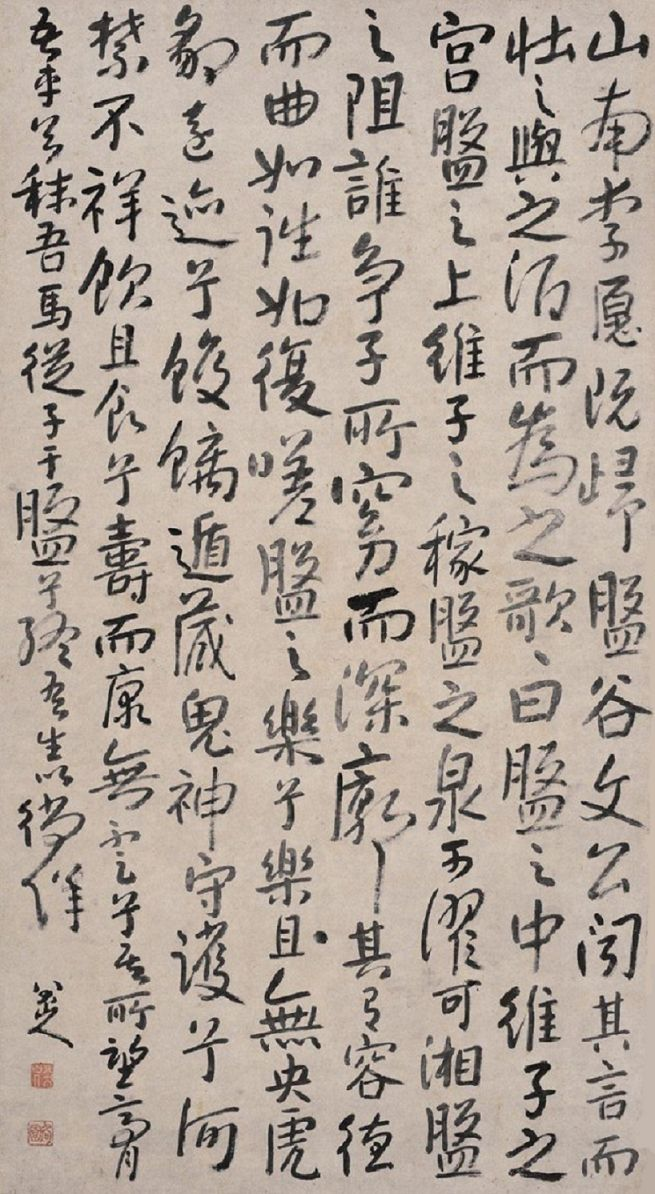 山南李愿既歸盤谷文公聞其言而
壯之與之酒而為之歌曰盤之中維子之
宮盤之上維子之稼盤之泉可濯可湘盤
之阻誰争子所窈而深廓其有容缭
而曲如往如復嗟盤之樂兮樂且無央虎
豹遠迹兮蛟螭遁藏鬼神守護兮呵
禁不祥飲且食兮壽而康無不足兮奚所望膏
吾車兮秣吾馬從子于盤兮終吾生以徜徉
八大山人